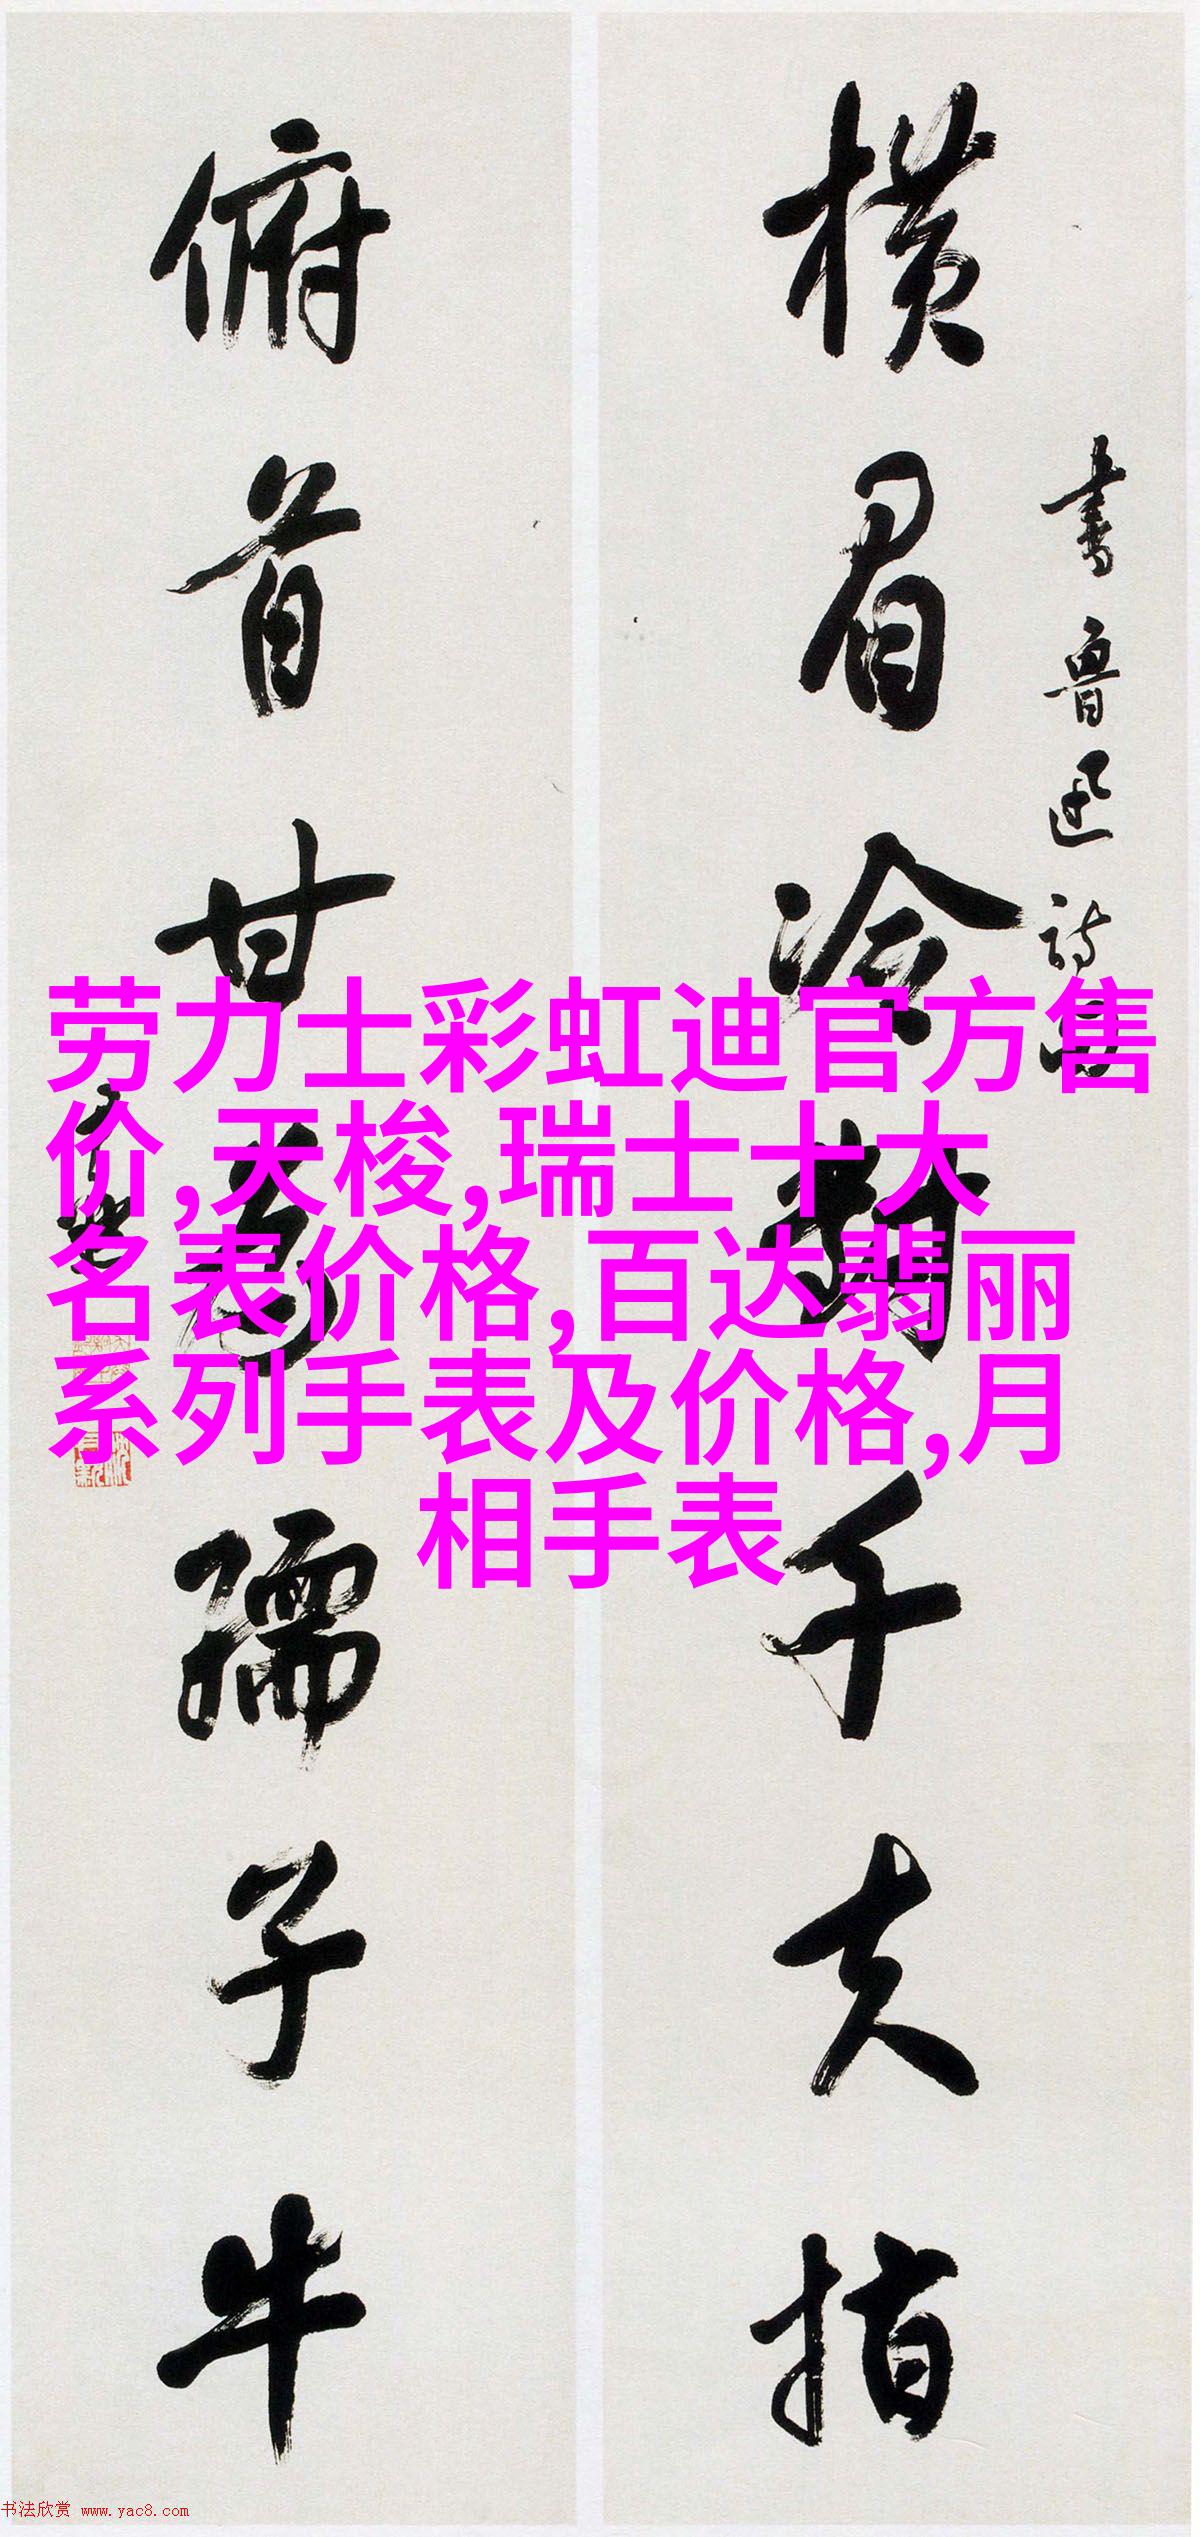 横眉冷對千夫指
書魯迅詩句
俯首甘為孺子牛
劳力士彩虹迪官方售
价,天梭,瑞士十大
名表价格,百达翡丽
系列手表及价格,月
相手表
书法欣赏 www.yac8.com